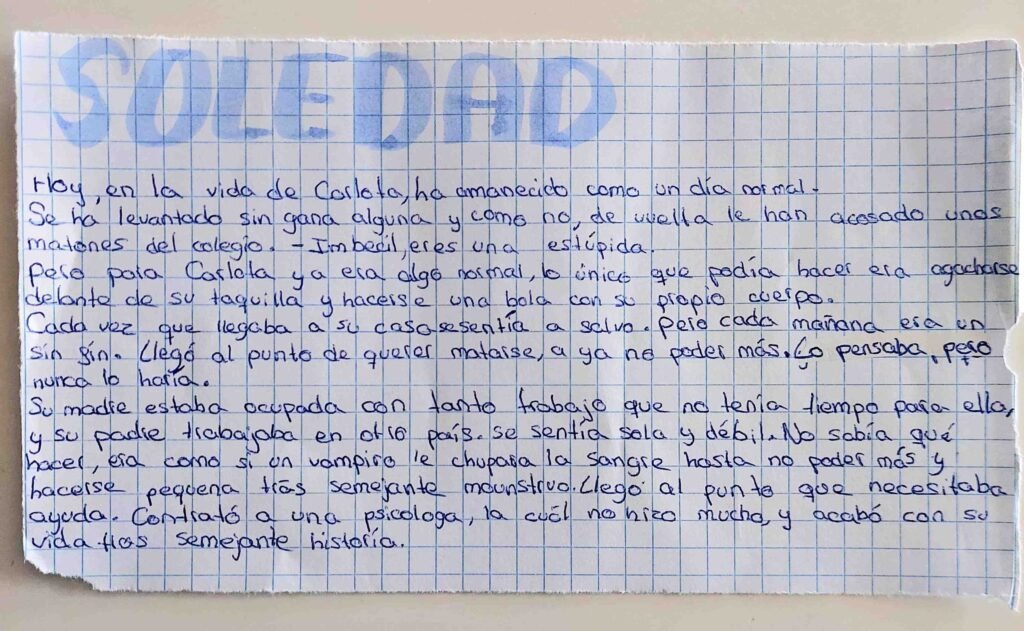 SOLEDAD
Hoy, en la vida de Carlota, ha amanecido como un día normal.
Se ha levantado sin gana alguna y como no, de vuelta le han acosado unos
matones del colegio. - Imbecil, eres una estúpida.
Pero para Carlota ya era algo normal, lo único que podía hacer era agacharse
delante de su taquilla y hacerse una bola con su propio cuerpo.
Cada vez que llegaba a su casa se sentía a salvo. Pero cada mañana era un
sin fin. Llegó al punto de querer matarse, a ya no poder más. Lo pensaba, pero
nunca lo haría.
Su madre estaba ocupada con tanto trabajo que no tenía tiempo para ella,
y su padre trabajaba en otro país. Se sentía sola y débil. No sabía qué
hacer, era como si un vampiro le chupara la sangre hasta no poder más y
hacerse pequena tras semejante mounstruo. Llegó al punto que necesitaba
ayuda. Contrató a una psicologa, la cuál no hizo mucho, y acabó con su
vida tras semejante historia.